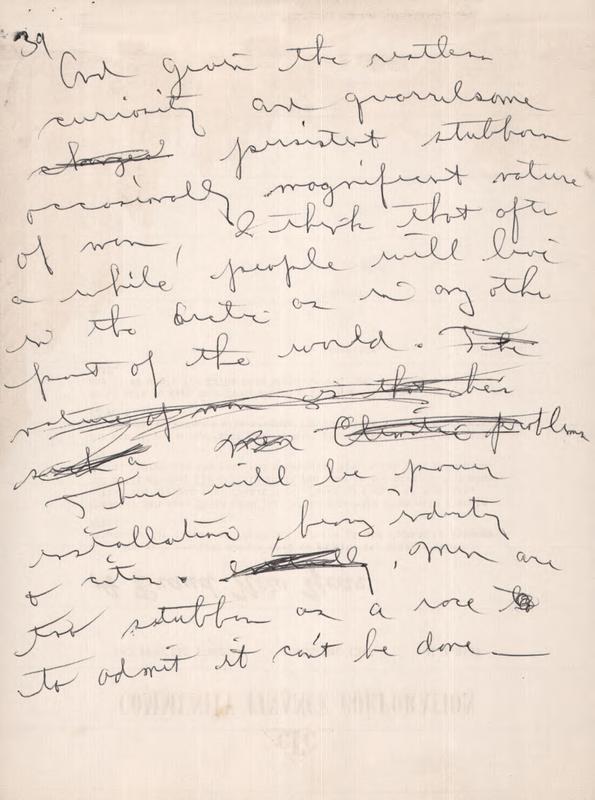 39
And given the restless
curiosity and quarrelsome
changed persistent stubborn
occasionally magnificent nature
of man, I think that after
a while people will live
in the Arctic as in any other
part of the world. The
nature of man is that he's
such a men Climatic problems
There will be power
installations, heavy industry
& cities. , Men are
too stubborn as a race to
to admit it can't be done —